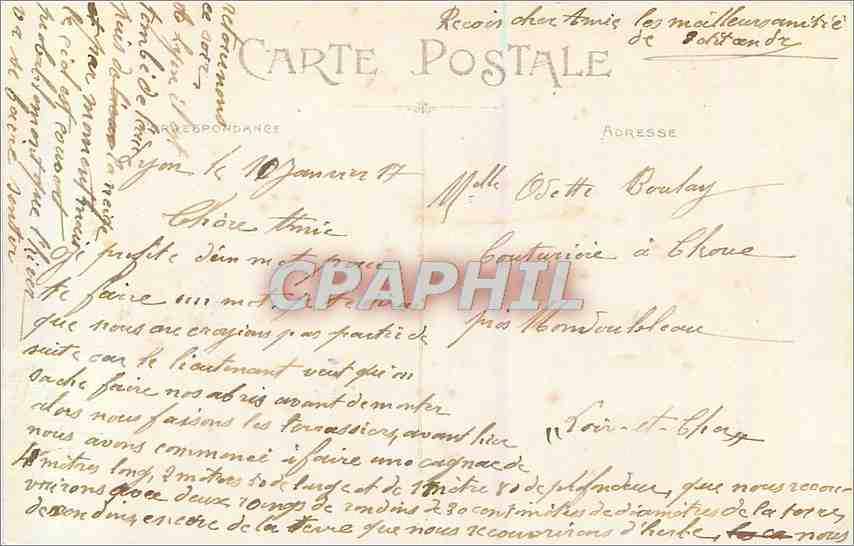 CARTE POSTALE
CORRESPONDANCE
ADRESSE
Lyon le 10 Janvier 17
Chère Amie
Je profite d'un moment pour
te faire un mot
que nous ne croyions pas partir de
suite car le lieutenant veut qu'on
sache faire nos abris avant de monter
alors nous faisons les terrassiers, avant hier
nous avons commencé à faire une cagna de
4 mètres long, 2 mètres 50 de large et de 1 mètre 80 de
que nous recou-
vrirons avec deux rangs de rondins de 30 centimètres de diamètres de la terre
encore de la terre que nous recouvrirons d'herbe, nous
retournons
ce soir
à Lyon il fait
de la neige
par moment mais
le ciel est couvert
probablement que l'hiver
va se faire sentir
Reçois cher Amie les meilleurs amitié
de
Melle Odette Boulay
Couturière à Choue
près Mondoubleau
"Loir-et-Cher"
CPAPHIL